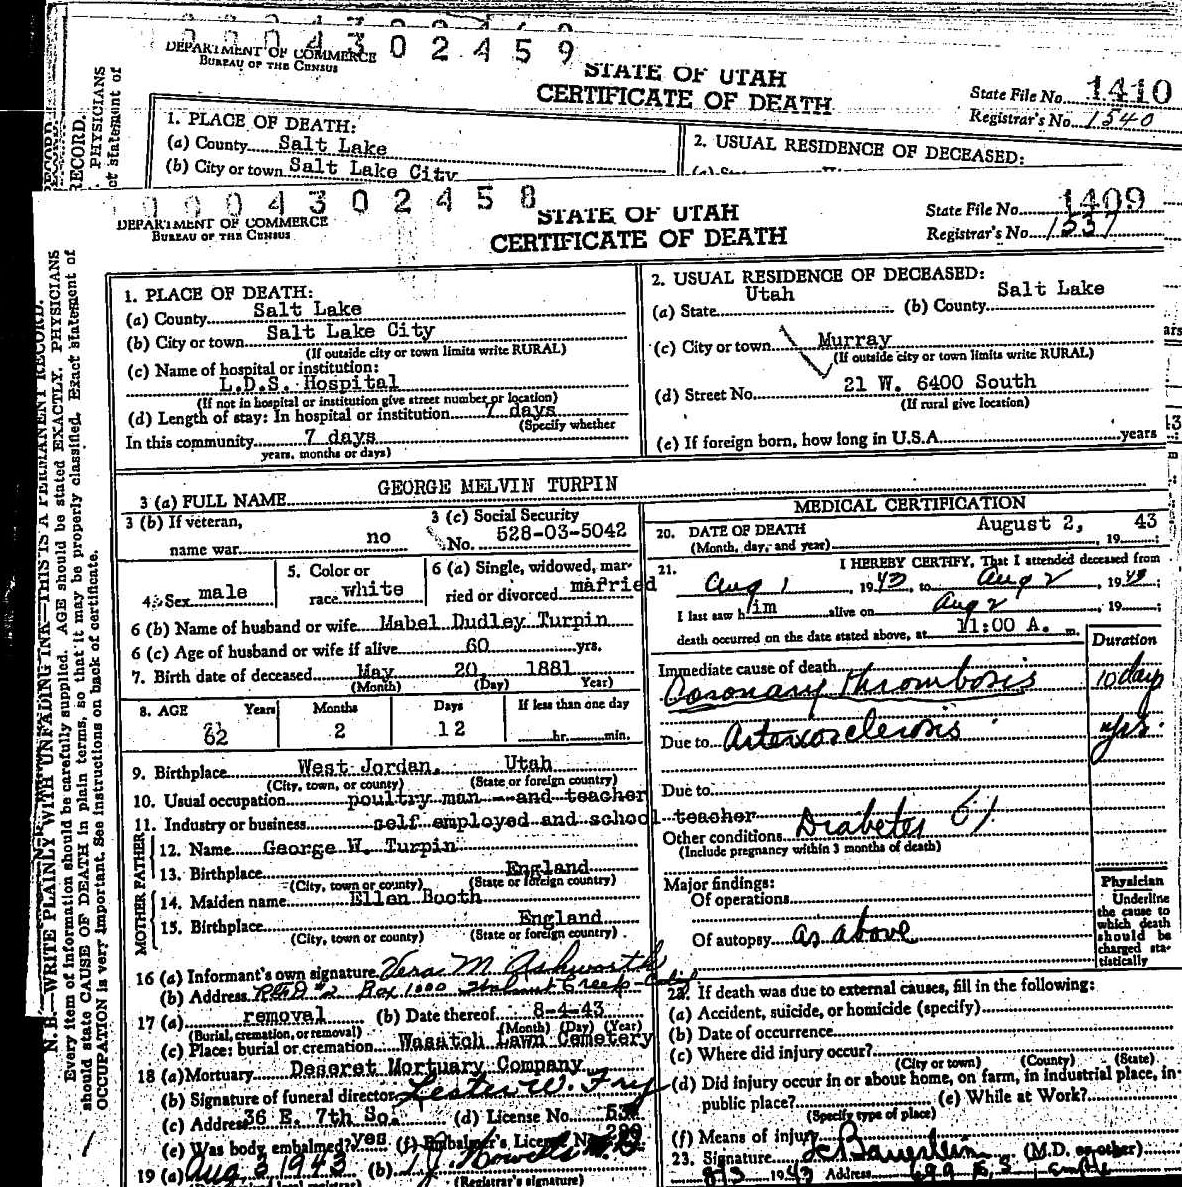 0004302459
DEPARTMENT OF COMMERCE
BUREAU OF THE CENSUS
STATE OF UTAH
CERTIFICATE OF DEATH
State File No. 1410
Registrar's No. 1540
1. PLACE OF DEATH:
(a) County Salt Lake
(b) City or town Salt Lake City
2. USUAL RESIDENCE OF DECEASED:
RECORD.
PHYSICIANS
ct statement of
0004302458
DEPARTMENT OF COMMERCE
BUREAU OF THE CENSUS
STATE OF UTAH
CERTIFICATE OF DEATH
State File No. 1409
Registrar's No. 1537
N. B.—WRITE PLAINLY WITH UNFADING INK—THIS IS A PERMANENT RECORD.
Every item of information should be carefully supplied. AGE should be stated EXACTLY. PHYSICIANS
should state CAUSE OF DEATH in plain terms, so that it may be properly classified. Exact statement of
OCCUPATION is very important. See instructions on back of certificate.
1. PLACE OF DEATH:
(a) County Salt Lake
(b) City or town Salt Lake City
(If outside city or town limits write RURAL)
(c) Name of hospital or institution:
L.D.S. Hospital
(If not in hospital or institution give street number or location)
(d) Length of stay: In hospital or institution 7 days
(Specify whether
In this community 7 days
years, months or days)
2. USUAL RESIDENCE OF DECEASED:
(a) State Utah (b) County Salt Lake
(c) City or town Murray
(If outside city or town limits write RURAL)
(d) Street No. 21 W. 6400 South
(If rural give location)
(e) If foreign born, how long in U.S.A. years
3 (a) FULL NAME GEORGE MELVIN TURPIN
3 (b) If veteran,
name war no
3 (c) Social Security
No. 528-03-5042
4. Sex male
5. Color or
race white
6 (a) Single, widowed, mar-
ried or divorced married
6 (b) Name of husband or wife Mabel Dudley Turpin
6 (c) Age of husband or wife if alive 60 yrs.
7. Birth date of deceased May 20, 1881
(Month) (Day) Year)
8. AGE Years Months Days If less than one day
62 2 12 hr. min.
9. Birthplace West Jordan, Utah
(City, town, or county) (State or foreign country)
10. Usual occupation poultry man -- and teacher
11. Industry or business self employed and school teacher
FATHER
12. Name George W. Turpin
13. Birthplace England
(City, town or county) (State or foreign country)
MOTHER
14. Maiden name Ellen Booth
15. Birthplace England
(City, town or county) (State or foreign country)
16 (a) Informant's own signature Vera M Ashworth
(b) Address RFD #2 Box 1000 Walnut Creek Calif
17 (a) removal (b) Date thereof 8-4-43
(Burial, cremation, or removal) (Month) (Day) (Year)
(c) Place: burial or cremation Wasatch Lawn Cemetery
18 (a) Mortuary Deseret Mortuary Company
(b) Signature of funeral director Lester W. Fry
(c) Address 36 E. 7th So. (d) License No.
(e) Was body embalmed? yes (f) Embalmer's License No.
19 (a) Aug 3 1943 (b) Howells
(Registrar's signature)
MEDICAL CERTIFICATION
20. DATE OF DEATH August 2, 19 43
(Month, day, and year)
21. I HEREBY CERTIFY, That I attended deceased from
Aug 1, 1943, to Aug 2, 1943;
I last saw him alive on Aug 2, 19 ;
death occurred on the date stated above, at 11:00 A. m.
Duration
Immediate cause of death
Coronary thrombosis 10 days
Due to Arteriosclerosis yrs.
Due to
Other conditions Diabetes 61
(Include pregnancy within 3 months of death)
Major findings:
Of operations
Of autopsy as above
Physician
Underline
the cause to
which death
should be
charged sta-
tistically
22. If death was due to external causes, fill in the following:
(a) Accident, suicide, or homicide (specify)
(b) Date of occurrence
(c) Where did injury occur?
(City or town) (County) (State)
(d) Did injury occur in or about home, on farm, in industrial place, in
public place? (e) While at Work?
(Specify type of place)
(f) Means of injury
23. Signature (M.D. or other)
8/3 1943 Address 699 E. S. Temple